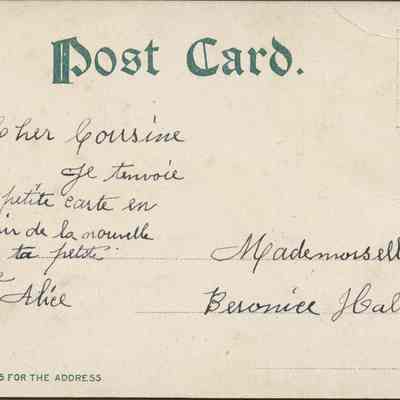 Post Card.
Cher Cousine
Je tenvoie
petite carte en
de la nouvelle
ta petite
Alice
Mademoisell
Beronice Hal
S FOR THE ADDRESS